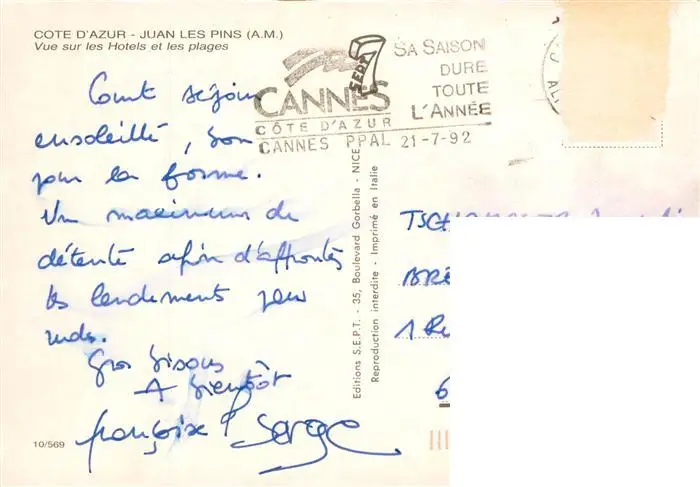 COTE D'AZUR - JUAN LES PINS (A.M.)
Vue sur les Hotels et les plages
Court séjour
ensoleillé, bon
pour la forme.
Un maximum de
détente afin d'affronter
les lendemains peu
rudes.
Gros bisous
A bientôt
françoise Serge
10/569
SEPT
CANNES
CÔTE D'AZUR
CANNES PPAL 21-7-92
SA SAISON
DURE
TOUTE
L'ANNÉE
Editions S.E.P.T. - 35, Boulevard Gorbella - NICE
Reproduction interdite - Imprimé en Italie
1 Ru
6